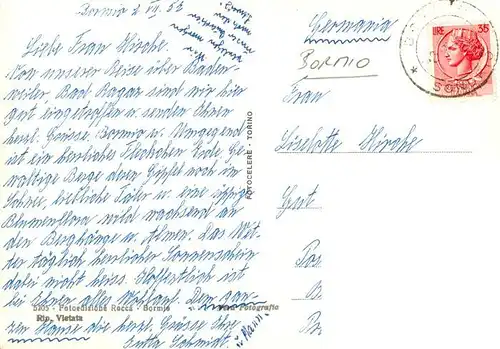 Bormio 2. VII. 53
Liebe Frau Hirche.
Von unserer Reise über Baden-
weiler, Bad Ragaz sind wir hier
gut eingetroffen u. senden Ihnen
herzl. Grüsse. Bormio u. Umgegend
ist ein herrliches Fleckchen Erde. Ge-
waltige Berge deren Gipfel noch im
Schnee, liebliche Täler u. eine üppige
Blumenflora wild wachsend an
den Berghänge u. Almen. Das Wet-
ter täglich herrlicher Sonnenschein
dabei nicht heiss. Hoffentlich ist
bei Ihnen alles wohlauf. Dem gan-
zen Hause die herzl. Grüsse Ihre
Jutta Schmidt.
u. Mann.
5205 - Fotoedizione Rocca - Bormio
Rip. Vietata
Vera Fotografia
FOTOCELERE - TORINO
Germania
BORMIO
LIRE 35
SOND
Frau
Liselotte Hirche